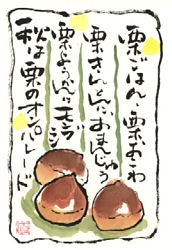 栗ごはん・栗おこわ
栗きんとんにおまんじゅう
栗ようかんにモンブラン
秋は栗のオンパレード